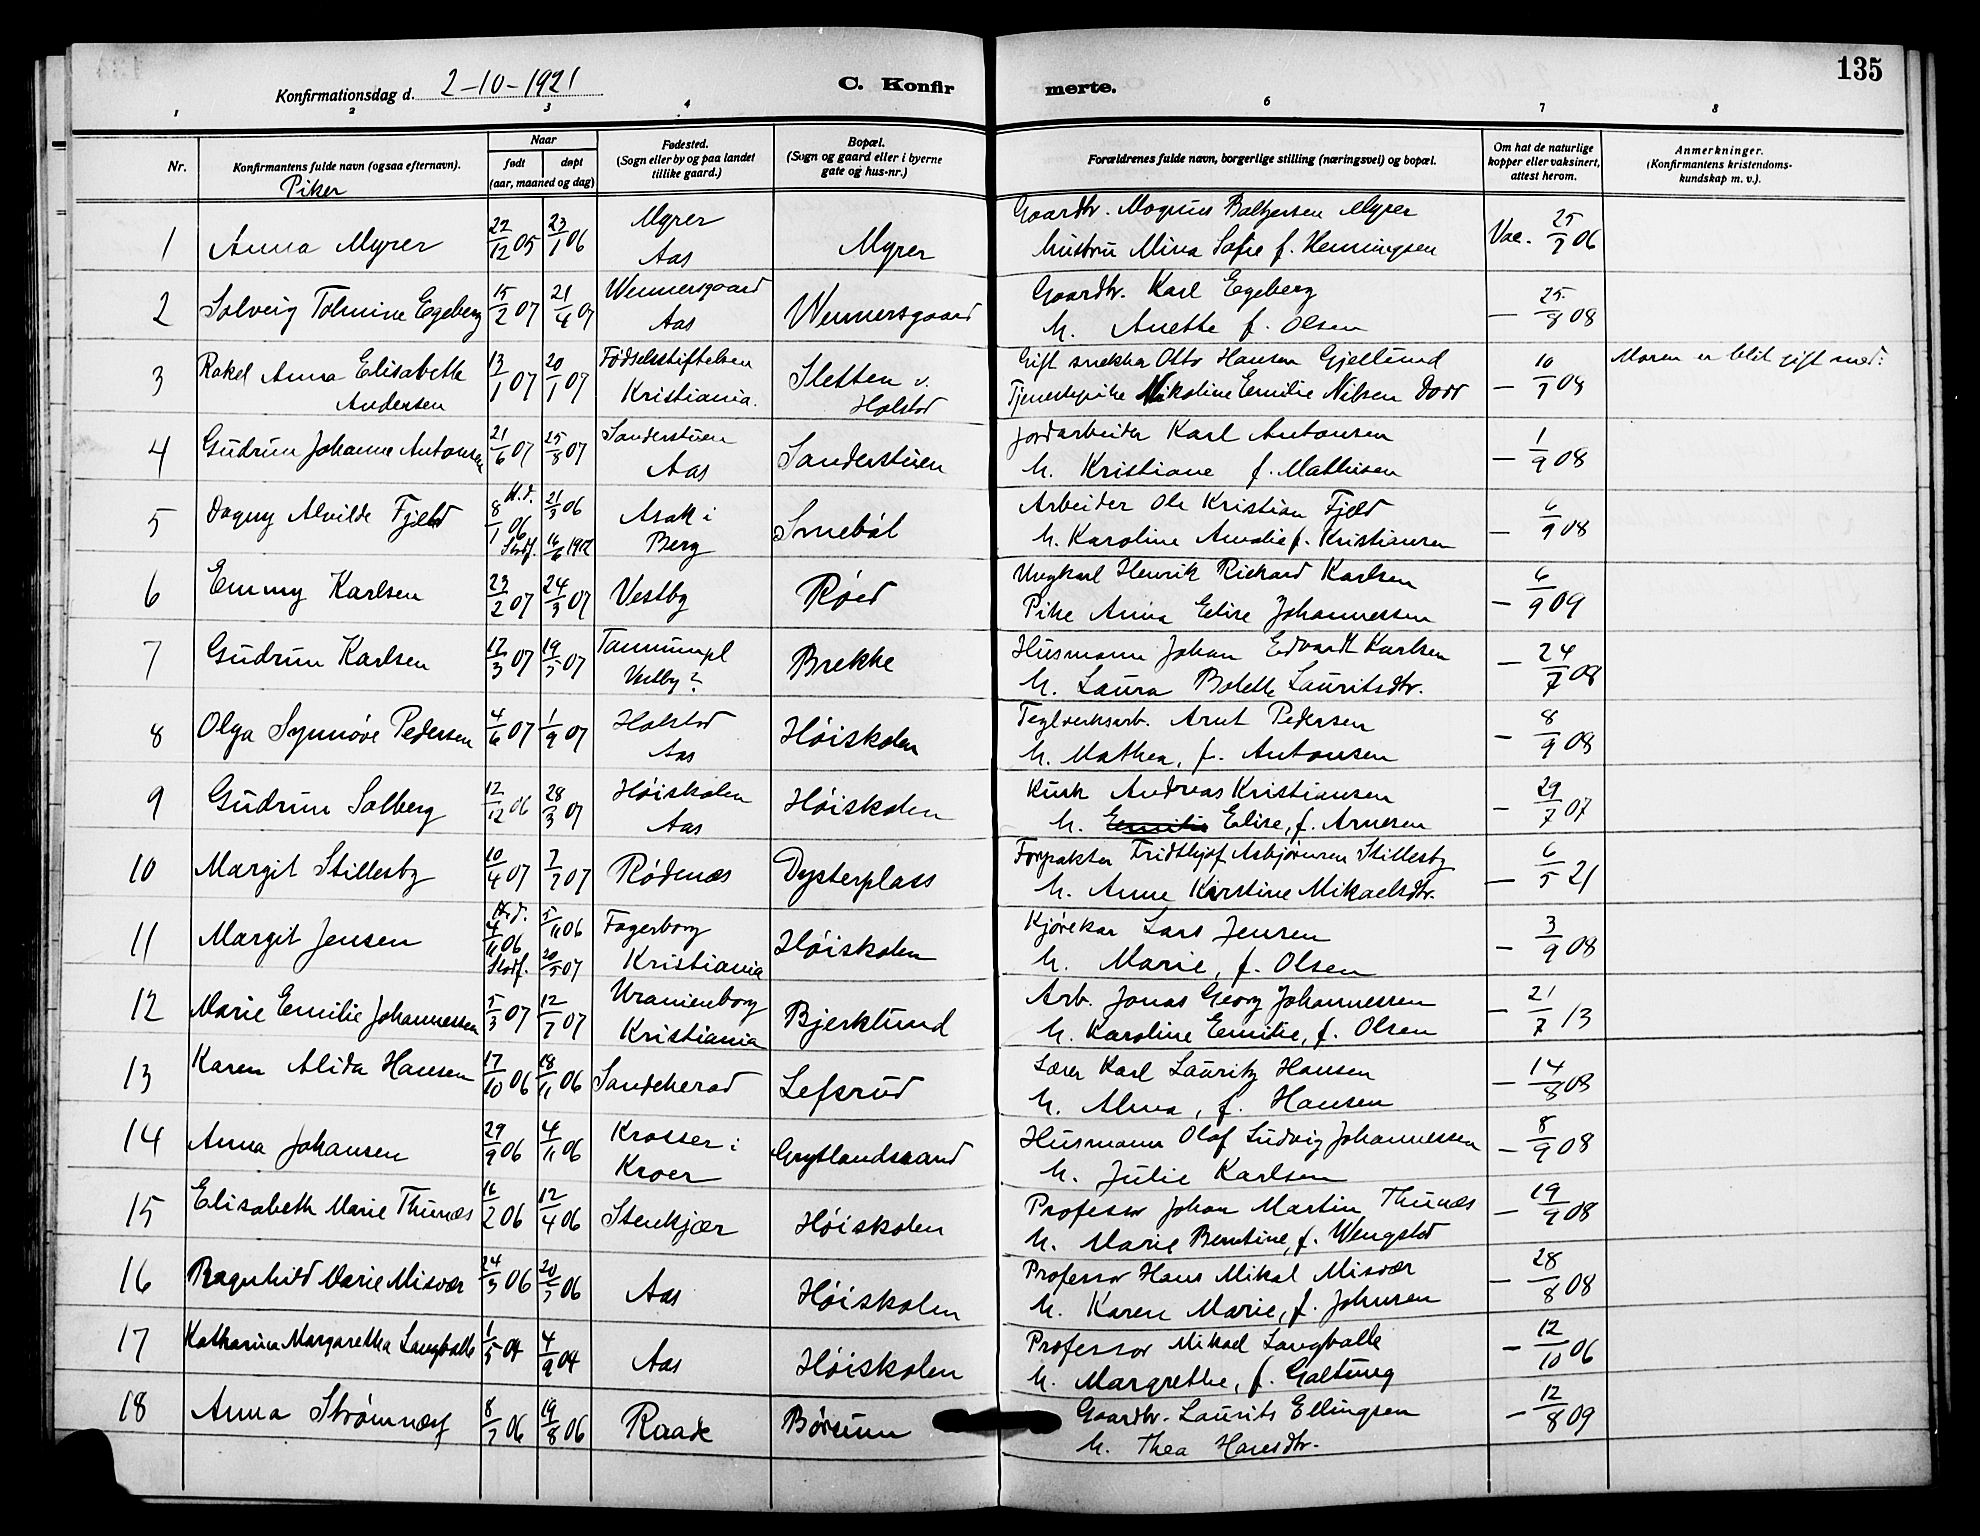 135
Konfirmationsdag d. 2-10-1921
C. Konfirmerte.
1 2 3 4 6 7 8
Nr.
Konfirmantens fulde navn (ogsaa efternavn).
Piker
Naar
født døpt
(aar, maaned og dag)
Fødested.
(Sogn eller by og paa landet
tillike gaard.)
Bopæl.
(Sogn og gaard eller i byerne
gate og hus-nr.)
Forældrenes fulde navn, borgerlige stilling (næringsvei) og bopæl.
Om hat de naturlige
kopper eller vaksinert,
attest herom.
Anmerkninger.
(Konfirmantens kristendoms-
kundskap m. v.).
1 Anna Myrer 22/12 05 23/1 06 Myrer Aas Myrer
Gaardbr. Magnus Baltzersen Myrer
hustru Mina Sofie f. Henningsen
Vac. 25/7 06
2 Solveig Tolmine Egeberg 15/2 07 21/4 07 Wennersgaard Aas Wennersgaard
Gaardbr. Karl Egeberg
h. Anette f. Olsen
— 25/8 08
3 Rakel Anna Elisabeth Andersen 13/1 07 20/1 07 Fødselsstiftelsen Kristiania. Sletten v. Holstad
Gift snekker Otto Hansen Gjellund
Tjenestepike Nikoline Emilie Nilsen Dadr
— 10/9 08
Moren er blit gift med:
4 Gudrun Johanne Antonsen 21/6 07 25/8 07 Sanderstuen Aas Sanderstuen
Jordarbeider Karl Antonsen
h. Kristiane f. Mathisen
— 1/9 08
5 Dagny Alvilde Fjeld H.d. 8/1 06 Stadf. 21/3 06 16/6 1912 Asak i Berg Smebøl
Arbeider Ole Kristian Fjeld
h. Karoline Amalie f. Kristiansen
— 6/9 08
6 Emmy Karlsen 23/2 07 24/3 07 Vestby Røed
Ungkarl Henrik Rickard Karlsen
Pike Anna Elise Johannessen
— 6/9 09
7 Gudrun Karlsen 12/3 07 19/5 07 Tannumpl Vestby? Brekke
Husmann Johan Edvardt Karlsen
h. Laura Bolette Lauritsdtr.
— 24/7 08
8 Olga Synnøve Pedersen 4/6 07 1/9 07 Holstad Aas Høiskolen
Teglverksarb. Arnt Pedersen
h. Mathea, f. Antonsen
— 8/9 08
9 Gudrun Solberg 12/12 06 28/3 07 Høiskolen Aas Høiskolen
Kusk Andreas Kristiansen
h. Emilie Elise, f. Arnesen
— 29/7 07
10 Margit Stillesby 10/4 07 7/7 07 Rødenæs Dysterplass
Forpakter Fridthjof Asbjørnsen Stillesby
h. Anne Kirstine Mikaelsdtr.
— 6/5 21
11 Margit Jensen H.d. 4/11 06 Stadf. 5/11 06 20/5 07 Fagerborg Kristiania Høiskolen
Kjørekar Lars Jensen
h. Marie, f. Olsen
— 3/9 08
12 Marie Emilie Johannessen 5/3 07 12/7 07 Uranienborg Kristiania Bjerklund
Arb. Jonas Georg Johannessen
h. Karoline Emilie, f. Olsen
— 21/7 13
13 Karen Alida Hansen 17/10 06 18/11 06 Sandeherad Lefsrud
Lærer Karl Lauritz Hansen
h. Alma, f. Hansen
— 14/8 08
14 Anna Johansen 29/9 06 4/11 06 Krosser i Kroer Grytlandsrand
Husmann Olaf Ludvig Johannessen
h. Julie Karlsen
— 8/9 08
15 Elisabeth Marie Thunæs 16/2 06 12/4 06 Stenkjær Høiskolen
Professor Johan Martin Thunæs
h. Marie Berntine, f. Wengstad
— 19/9 08
16 Ragnhild Marie Misvær 24/3 06 20/5 06 Aas Høiskolen
Professor Hans Mikal Misvær
h. Karen Marie, f. Johnsen
— 28/8 08
17 Katharina Margarethea Langballe 1/5 04 4/9 04 Aas Høiskolen
Professor Mikael Langballe
h. Margrethe, f. Galtung
— 12/10 06
18 Anna Strømnæs 8/7 06 19/8 06 Raade Børsum
Gaardbr. Laurits Ellingsen
h. Thea Hansdtr.
— 12/8 09